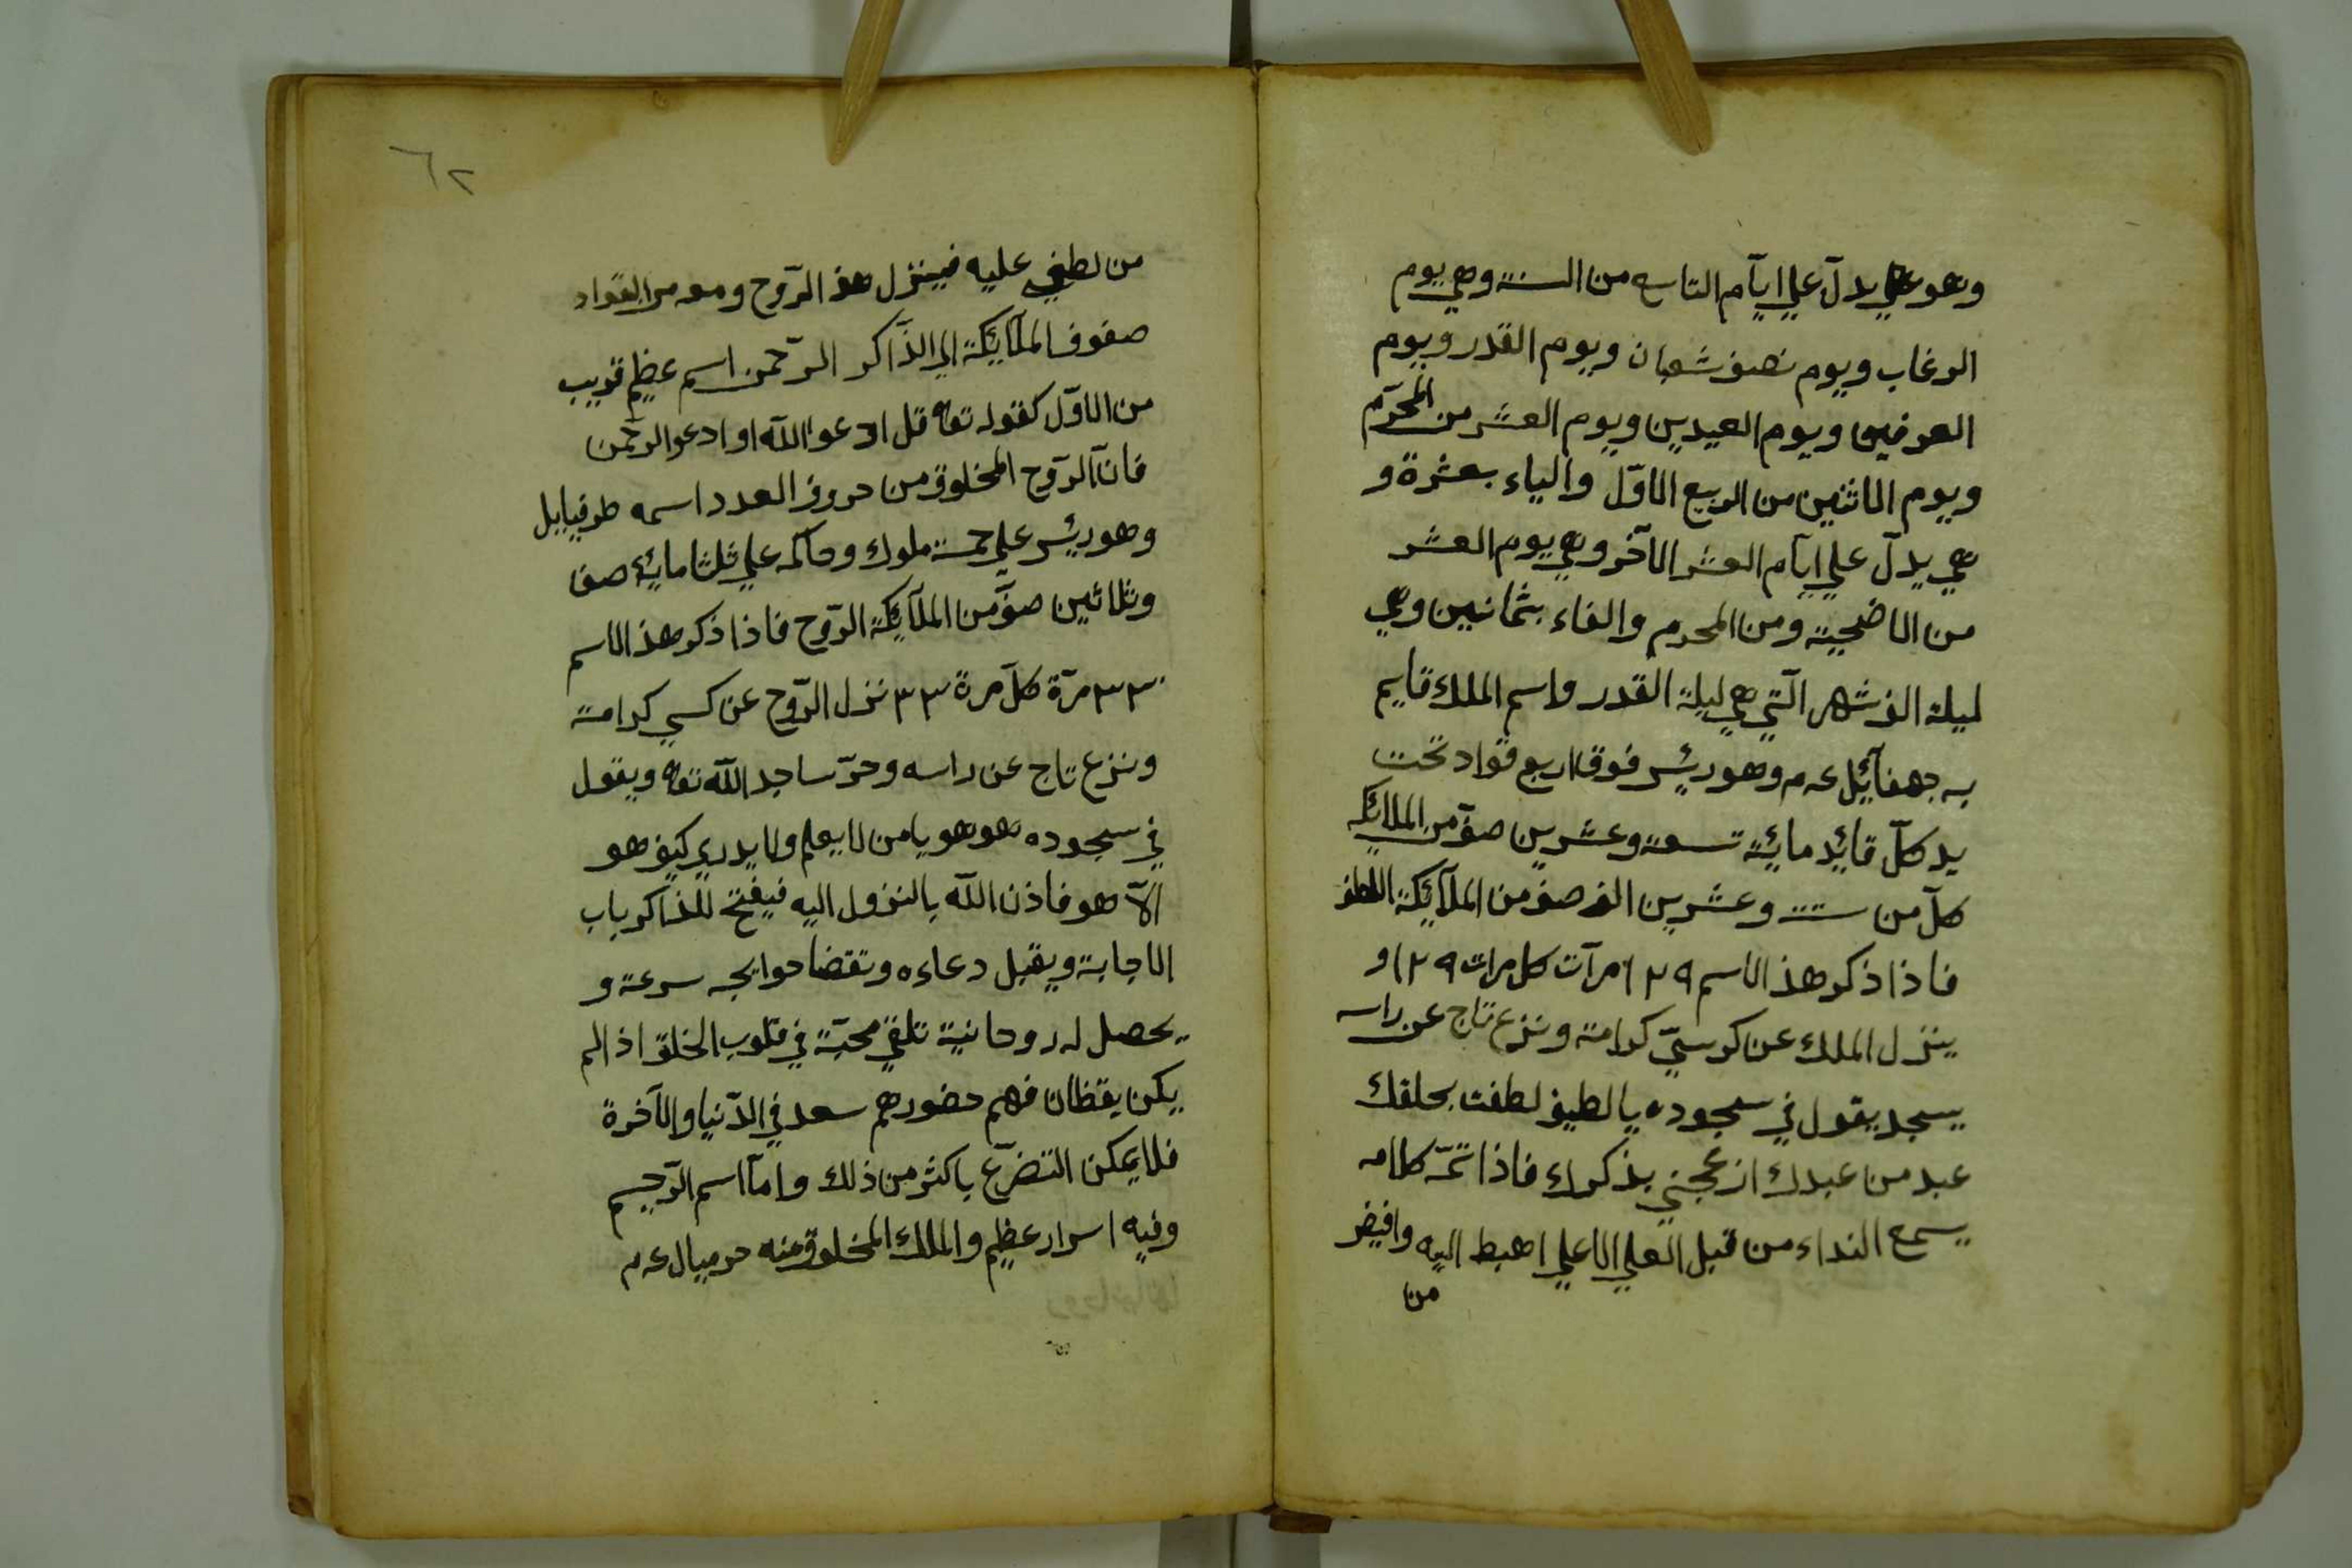 وهو علي يدلّ علي ايّام التاسع من السنة وهي يوم
الرغاب ويوم نصف شعبان ويوم القدر ويوم
العرفين ويوم العيدين ويوم العشر من المحرّم
ويوم الاثنين من الربيع الاوّل والياء بعشرة و
هي يدلّ علي ايّام العشر الآخر وهي يوم العشر
من الاضحية ومن المحرم والفاء بثمانين وهي
ليلة الف شهر الّتي هي ليلة القدر واسم الملك قايم
به جهفآئيل عم وهو رئيس فوق اربع قواد تحت
يد كلّ قائد مائة تسعة وعشرين صفّ من الملائكه
كلّ من ستة وعشرين الف صف من الملآئكة اللطف
فاذا ذكر هذ الاسم ١٢٩ مرآت كل مرات ١٢٩ و
ينزل الملك عن كرسيّ كرامة ونزع تاج عن راسه
يسجد يقول في سجوده يا لطيف لطفت بحلقك
عبد من عبدك ازعجني بذكراء فاذا تمّ كلامه
يسمع النداء من قبل العلي الاعلي اهبط اليه وافيض
من
٦٢
من لطفي عليه فينزل هذ الرّوح ومعه من القواد
صفوف الملآئكة الي الذّاكر الرّحمن اسم عظيم قريب
من الاوّل كقوله تعا قل ادعوا اللّه او ادعو الرحّمن
فانّ الرّوح المخلوق من حروف العدد اسمه طرفيايل
وهو رئيس علي خمسة ملوك وحاكمه علي ثلثا مائة صف
وثلاثين صفّ من الملآئكة الرّوح فاذا ذكر هذ الاسم
٣٣٠ مرّة كلّ مرة ٣٣٠ نزل الرّوح عن كسي كرامة
ونزع تاج عن راسه وخرّ ساجد اللّه تعا ويقول
في سجوده هو هو يا من لا يعلم ولا يدري كيف هو
الّا هو فاذن اللّه بالنزول اليه فيفتح للذاكر باب
الاجابة ويقبل دعاءه وتقضا حوايجه سرعة و
يحصل له روحانية تلقي محبّة في قلوب الخلق اذ لم
يكن يقظان فهم حضورهم سعد في الدّنيا والآخرة
فلا يمكن التضرّع باكثر من ذلك وامّا اسم الرّحيم
وفيه اسرار عظيم والملك المخلوق منه حرميال عم